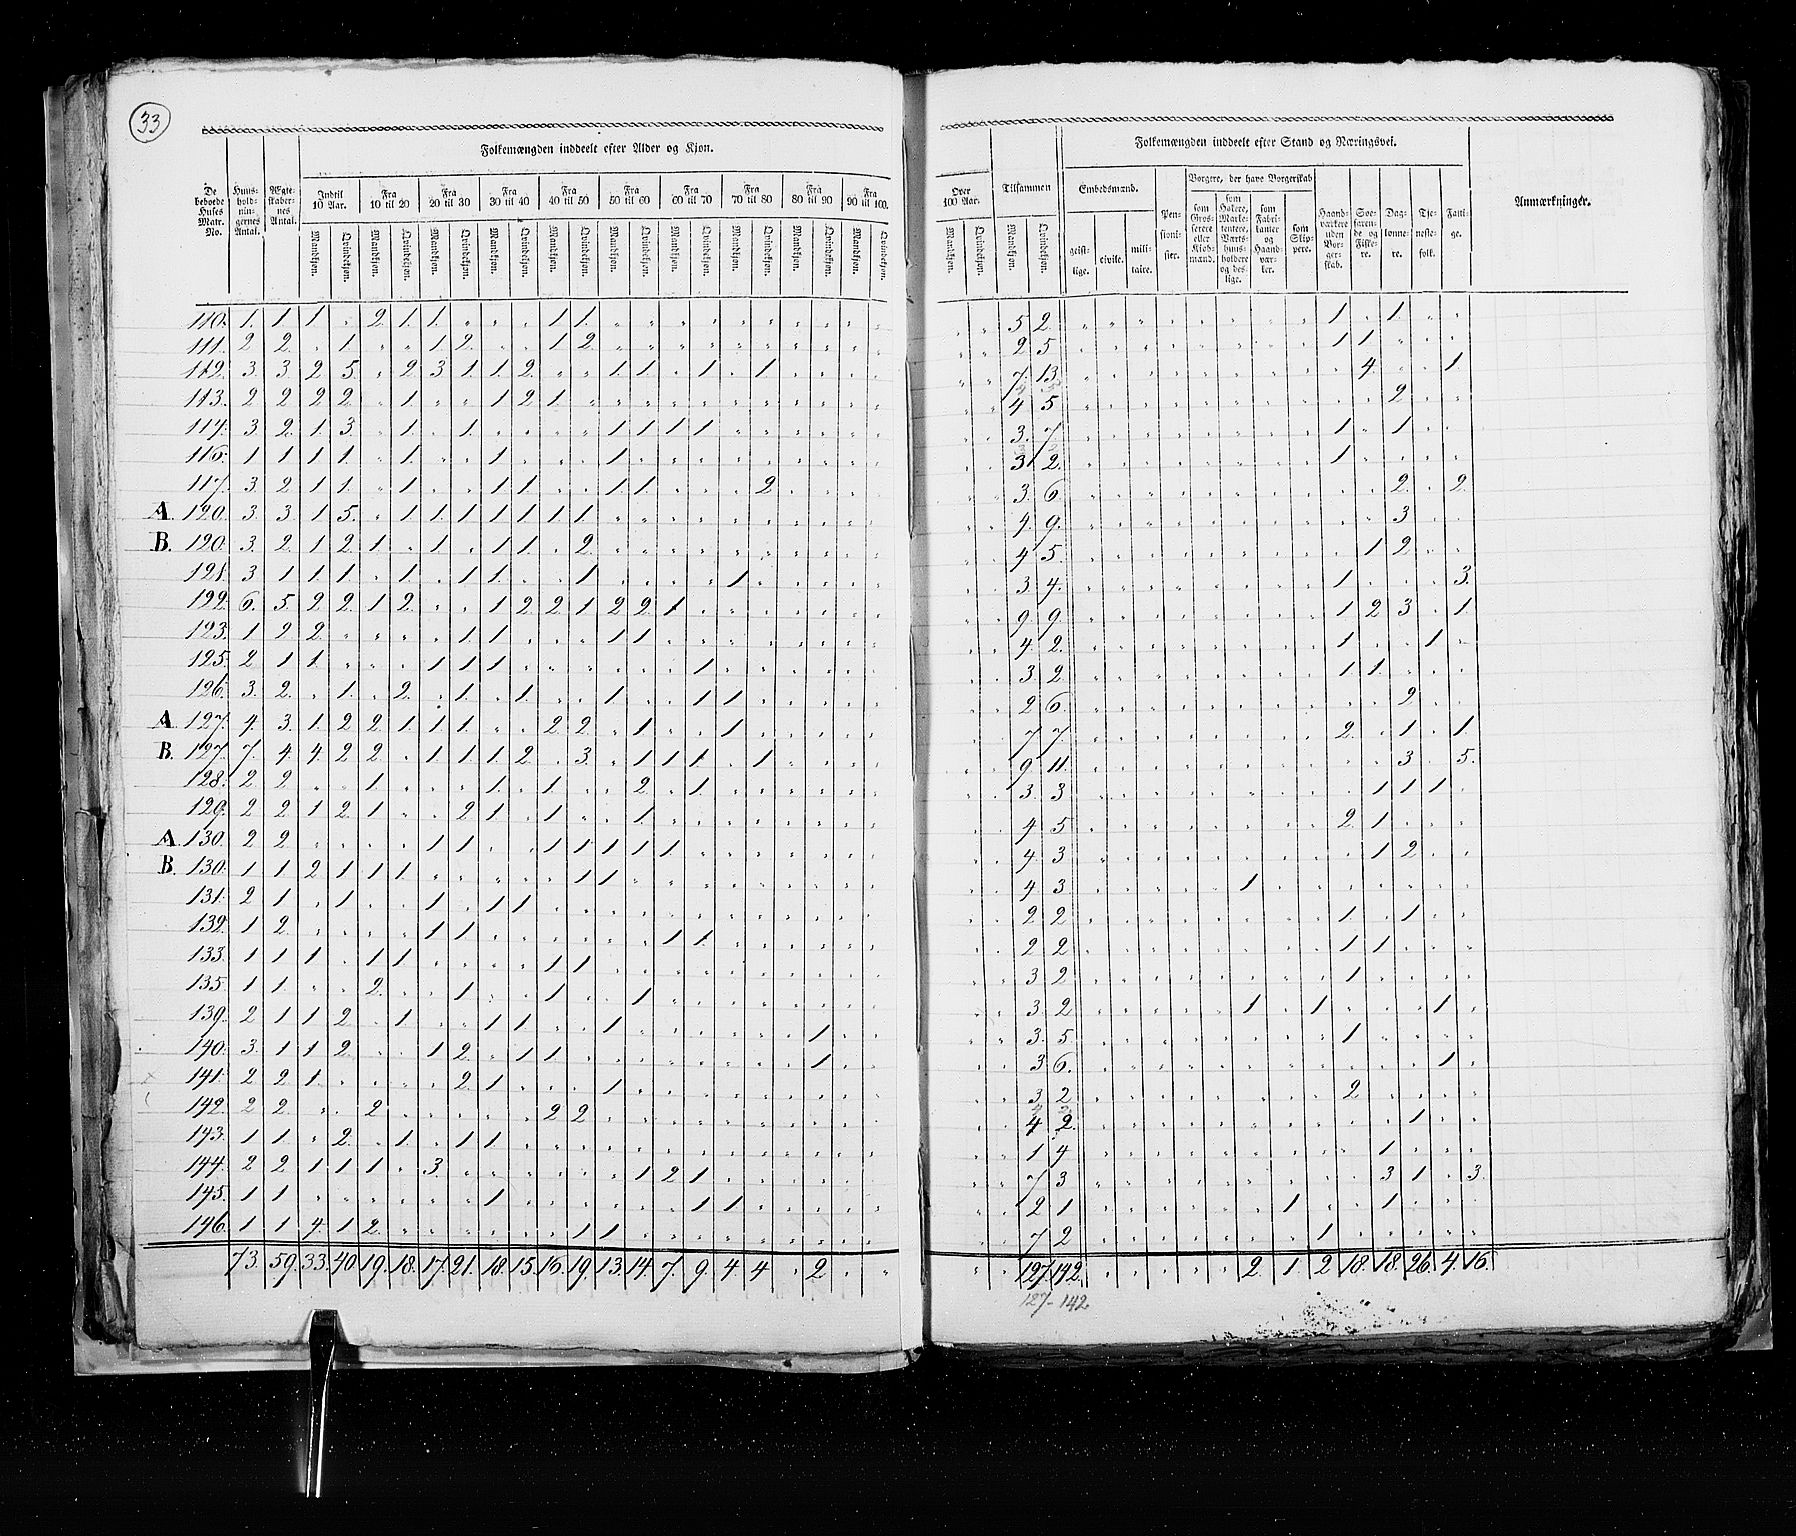 33
Folkemængden inddeelt efter Alder og Kjøn.
De beboede Huses Matr. No.
Huus-hold-nin-gernes Antal.
Ægte-skaber-nes Antal.
Indtil 10 Aar.
Fra 10 til 20
Fra 20 til 30
Fra 30 til 40
Fra 40 til 50
Fra 50 til 60
Fra 60 til 70
Fra 70 til 80
Fra 80 til 90
Fra 90 til 100.
Mandkjøn. Qvindekjøn. Mandkjøn. Qvindekjøn. Mandkjøn. Qvindekjøn. Mandkjøn. Qvindekjøn. Mandkjøn. Qvindekjøn. Mandkjøn. Qvindekjøn. Mandkjøn. Qvindekjøn. Mandkjøn. Qvindekjøn. Mandkjøn. Qvindekjøn. Mandkjøn. Qvindekjøn.
110. 1. 1 1 „ 2. 1. 1. „ „ „ 1 1. „ „ „ „ „ „ „ „ „ „
111. 2 2. „ 1. „ „ 1 2. „ „ 1 2. „ „ „ „ „ „ „ „ „ „
112. 3 3 2 5 „ 2 3 1. 1. 2. „ „ 1. 1. „ 1. „ 1. „ „ „ „
113. 2 2 2 2. „ 1. „ „ 1 2 1. „ „ „ „ „ „ „ „ „ „ „
114. 3 2. 1. 3. „ 1. „ 1. „ „ „ „ 1 1 1 1 „ „ „ „ „ „
116. 1 1 1 1. „ 1. „ „ 1. „ „ „ 1. „ „ „ „ „ „ „ „ „
117. 3. 2 1 1. „ 1. „ „ 1 1. „ „ 1. 1. „ „ „ 2 „ „ „ „
A. 120. 3. 3 1 5. „ 1 1. 1 1 1 1 1. „ „ „ „ „ „ „ „ „ „
B. 120. 3. 2. 1 2 1 „ 1 „ 1 1. „ 2. „ „ „ „ „ „ „ „ „ „
121. 3 1 1. 1. „ 1. „ 1 1. „ „ 1 „ „ „ „ 1 „ „ „ „ „
122. 6. 5. 2 2. 1 2. „ „ 1 2. 2 1 2 2. 1 „ „ „ „ „ „ „
123. 1 2 2. „ „ „ „ 1 1. „ „ „ 1 1. „ „ „ „ „ „ „ „
125. 2 1 1. „ „ „ 1 1 1 „ „ „ „ „ „ 1. „ „ „ „ „ „
126. 3. 2. „ 1. „ 2. „ 1. „ 1. „ „ 1 „ „ 1 1 „ „ „ „ „
A. 127. 4. 3. 1. 2 2. 1. 1. 1. „ „ 2 2. „ 1 „ „ 1. „ „ „ „ „
B. 127. 7. 4 4. 2 2 „ 1 1 1. 2. „ 3. „ 1 1 1. „ 1 „ „ „ „
128. 2 2 „ „ 1. „ „ „ 1. „ 1 „ „ 2. „ 1. „ „ „ „ „ „
129. 2 2 1 2. 1 „ „ 2 1. „ 1 „ „ 1. „ „ „ „ „ „ „ „
A. 130. 2 2. „ „ „ „ 1 1. „ „ 1 1 1 1 1 „ „ „ „ „ „ „
B. 130. 1 1 2 1 1 1. „ „ „ „ „ 1 1. „ „ „ „ „ „ „ „ „
131. 2 1 „ 1 „ „ 1 „ 1 1 „ „ „ „ „ „ „ „ „ „ „ „
132. 1 2. „ „ „ „ 1 1. „ „ „ „ „ „ 1 1. „ „ „ „ „ „
133. 1 1 1 „ 1 1. „ „ „ „ 1 1. „ „ „ „ „ „ „ „ „ „
135. 1 1. „ „ 2. „ „ 1 „ „ 1 „ „ 1 „ „ „ „ „ „ „ „
139. 2 1 1 2. „ 1. „ „ 1 1. „ „ 1 „ „ „ „ „ „ 1 „ „
140. 3. 1 1 2. „ „ 1 2. „ 1 1. „ „ „ „ „ „ „ „ 1. „ „
141. 2 2 1. „ „ „ „ 2. 1. „ „ „ 1. „ „ „ „ „ „ „ „ „
142. 2 2. „ „ 2 „ „ „ „ „ 2 2. „ „ „ „ „ „ „ „ „ „
143. 1 1. „ 2. „ 1. „ 1 1. „ „ „ „ „ „ „ „ „ „ „ „ „
144. 2 2 1 1 1 „ 3. „ „ „ „ „ „ 1 2 1 „ „ „ „ „ „
145. 1 1. „ „ „ „ „ „ 1 „ „ „ „ „ „ 1 1 „ „ „ „ „
146. 1 1 4. 1 2. „ „ „ „ „ „ 1 1. „ „ „ „ „ „ „ „ „
73. 59. 33. 40. 19. 18. 17. 21. 18. 15. 16. 19. 13. 14. 7. 9. 4. 4 „ 2 „ „
Over 100 Aar.
Tilsammen
Folkemængden inddeelt efter Stand og Næringsvei.
Embedsmænd.
Borgere, der have Borgerskab
Anmærkninger.
Mandkjøn. Qvindekjøn. Mandkjøn. Qvindekjøn.
geist-lige.
civile.
mili-taire.
Pen-sioni-ster.
som Gros-serere eller Kjøb-mænd.
som Høkere, Marke-tentere, Værts-huus-holdere og des-lige.
som Fabri-kanter og Haand-vær-ker.
som Skip-pere.
Haand-værkere uden Bor-ger-skab.
Søe-farende og Fiske-re.
Dag-lønne-re.
Tje-neste-folk.
Fatti-ge.
5 2. 1 „ 1. „ „
2 5 1 1. „ „ „
7. 13. 4. „ „ 1.
4 5 2. „ „
3. 7 1. „ 1. „ „
3 2. 1. „ „ „ „
3. 6. 2. „ 2.
4. 9. 3 „ „
4 5. 1 2. „ „
3 4. 1. „ „ „ 3.
9 9. 1 2 3 „ 1.
4. 2. 1. „ „ 1 „
3. 2. 1 1. „ „ „
2 6. 2. „ „
7 7. 2. „ 1. „ 1
9 11. 3. „ 5.
3. 3 1 1 1 „
4 5 2. 1. „ „ „
4. 3 1 2. „ „
4 3 1. „ „ „ „ „ „
2 2 1. „ 1. „ „
2 2 1 1. „ „ „
3 2 1. „ „ „ „
3 2 1 „ 1 „ „ „ 1. „
3. 5 1. „ „ „ „
3 6. 1. „
3 2 2. „ „ „ „
4 2. 1. „ „
1 4 1. „ „ „
7 3 3 1. „ 3.
2 1 1 „ „ 1. „ „ „
7 2 1. „ „ „ „
127. 142. „ „ „ „ „ „ 2. 1. 2 18. 18. 26. 4. 16.
127-142